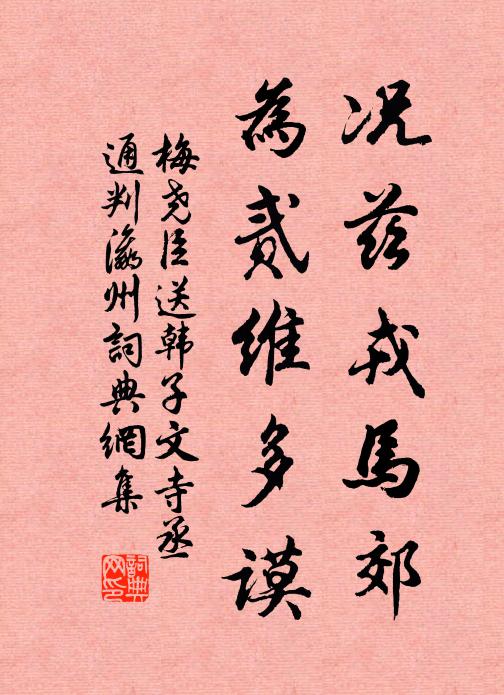 况茲戎馬郊
為貳維多謨
梅尧臣送韩子文寺丞
通判瀛州詞典網集
詞典网印